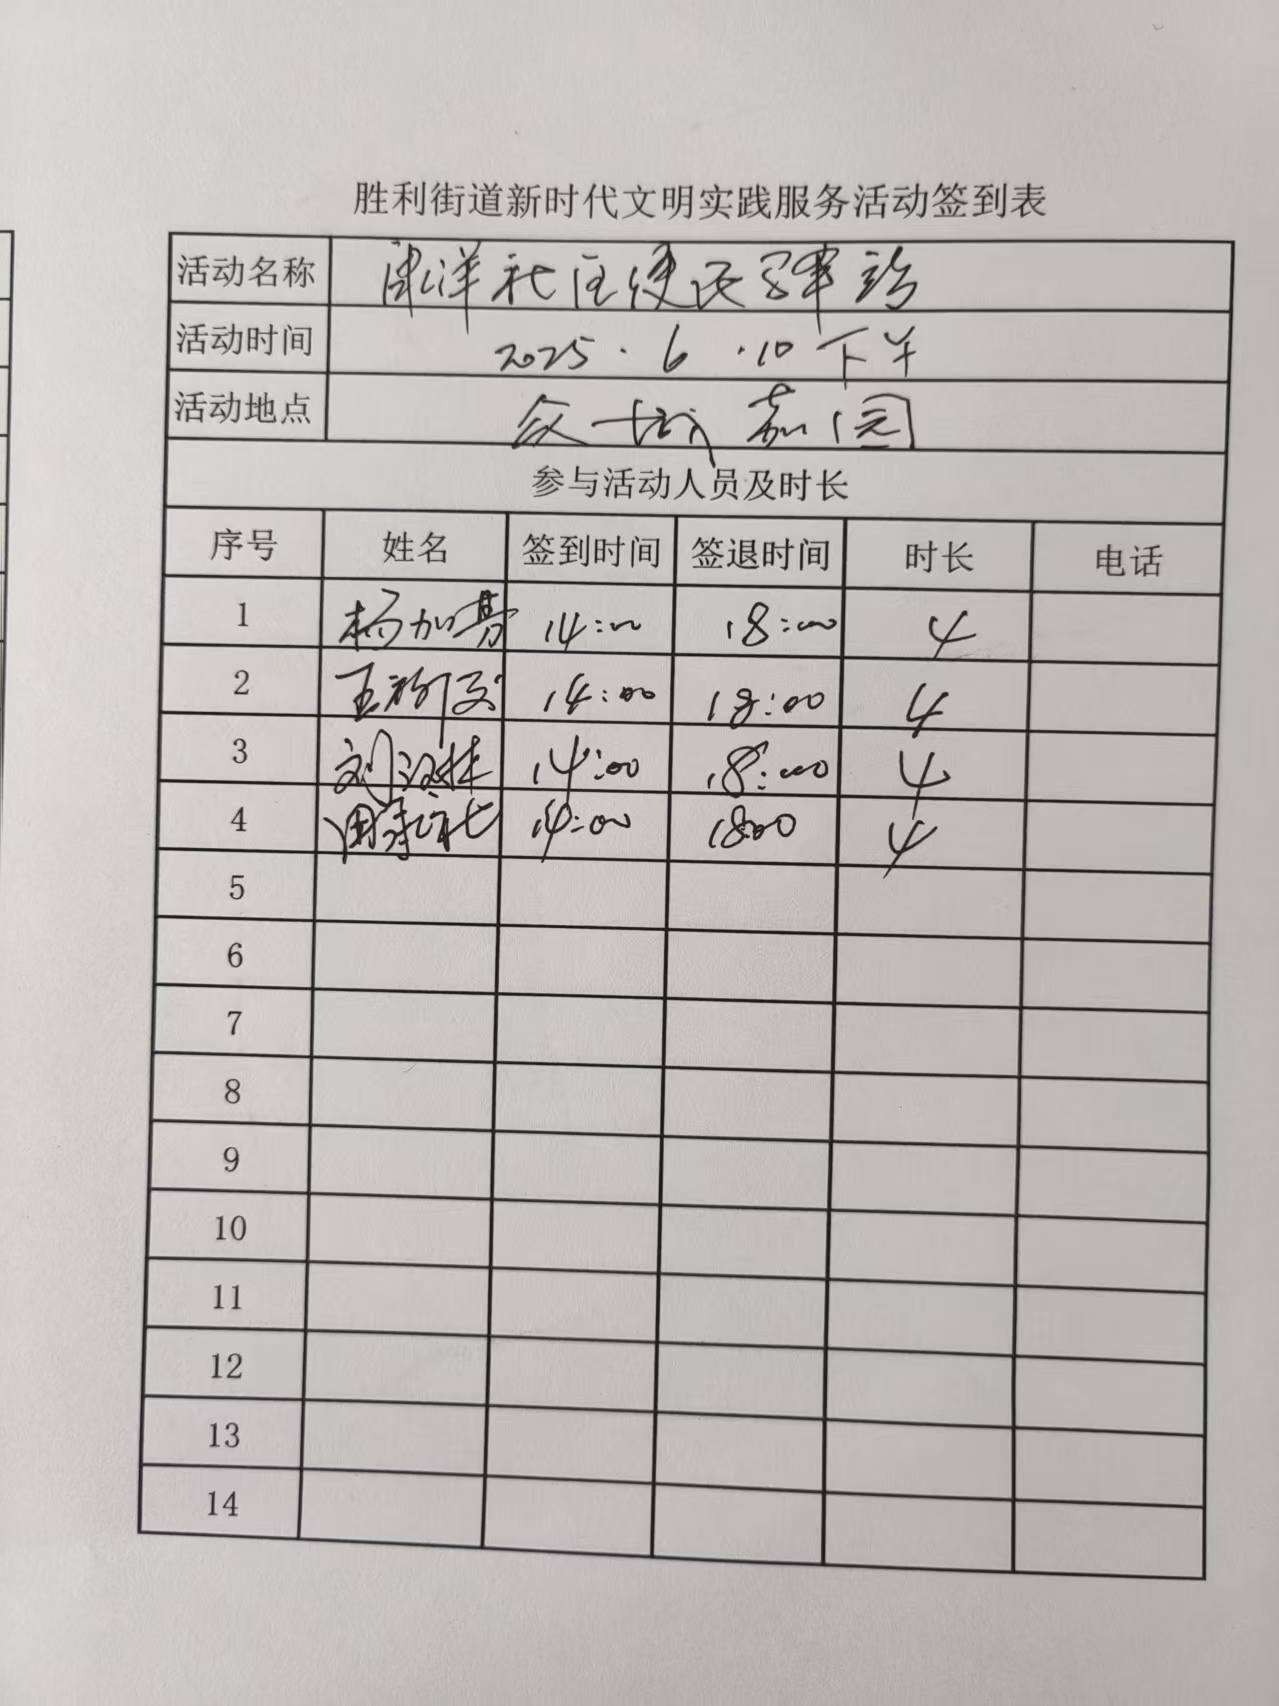 胜利街道新时代文明实践服务活动签到表
活动名称 津洋社区便民驿站
活动时间 2025.6.10下午
活动地点 众城嘉园
参与活动人员及时长
序号 姓名 签到时间 签退时间 时长 电话
1 杨加 14:00 18:00 4
2 王 14:00 18:00 4
3 刘汉林 14:00 18:00 4
4 周 14:00 1800 4
5
6
7
8
9
10
11
12
13
14